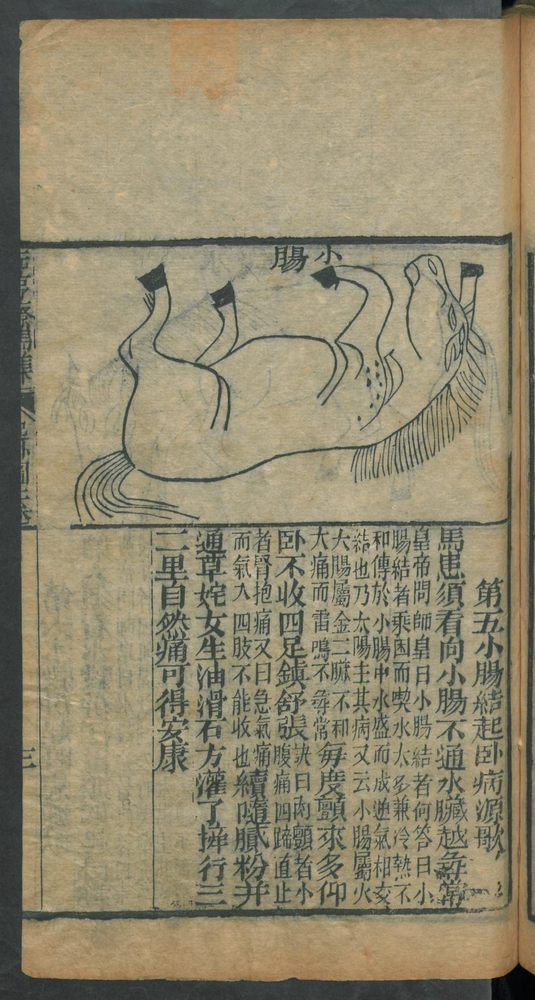 小腸
第五小腸結起卧病源歌
馬患須看向小腸不通水臟越尋常
皇帝問師皇曰小腸結者何答曰小
腸結者乘困而喫水太多兼冷熱不
和傳於小腸中水盛而成逆氣相交
結也乃太陽主其病又云小腸屬火
大腸屬金二臟不和
大痛而雷鳴不尋常
每度顫來多仰
卧不收四足鎮舒張
訣曰内顫者小
腹痛四蹄直止
者腎抱痛又曰急氣痛
而氣入四肢不能收也
續隨膩粉并
通草姹女生油滑石方灌了擀行三
二里自然痛可得安康
三